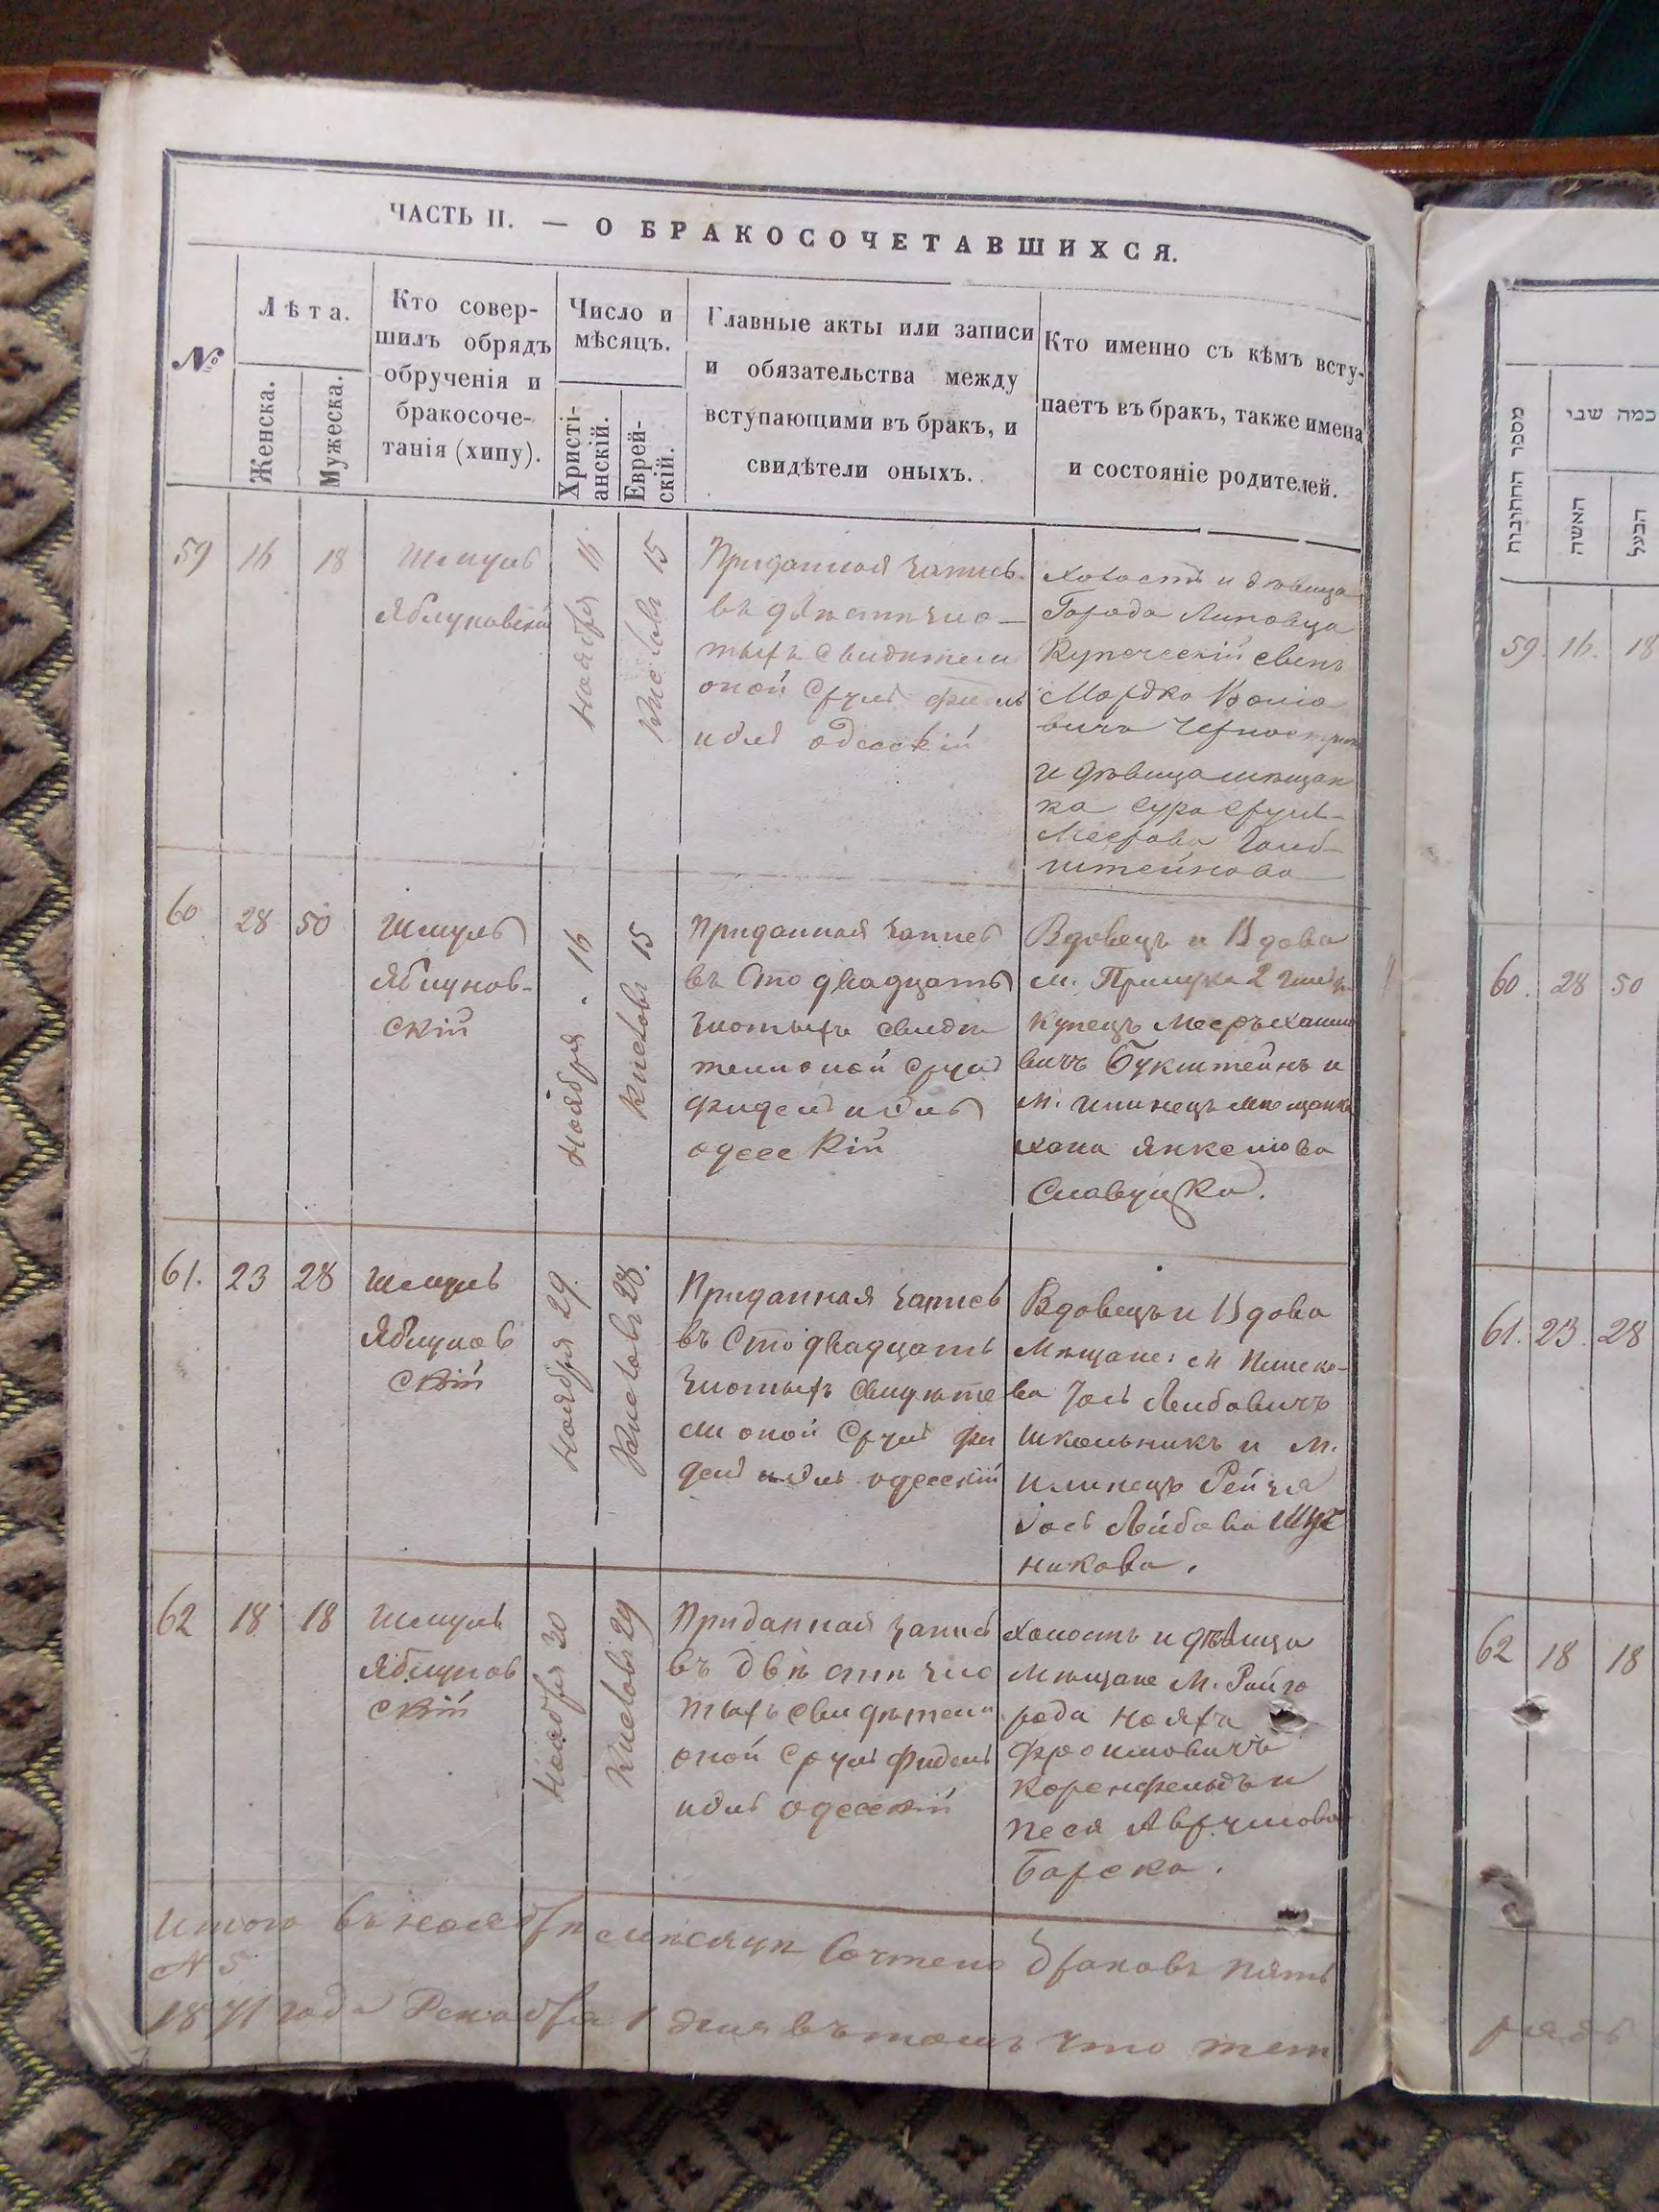 ЧАСТЬ II. — О БРАКОСОЧЕТАВШИХСЯ.
№
Лѣта.
Женска.
Мужеска.
Кто совер-
шилъ обрядъ
обрученія и
бракосоче-
танія (хипу).
Число и
мѣсяцъ.
Христі-
анскій.
Еврей-
скій.
Главные акты или записи
и обязательства между
вступающими въ бракъ, и
свидѣтели оныхъ.
Кто именно съ кѣмъ всту-
паетъ въ бракъ, также имена
и состояніе родителей.
59
16
18
Шмуль
Яблуновскій
Ноября 16
Кислевъ 15
Приданная запись
въ двѣсти зло-
тыхъ свидители
оной Сруль
идль одесскій
Холостъ и дѣвица
Города Липовца
Купеческій сынъ
Мордко
и дѣвица мѣщан
ка Сура Сруль-
Меерова Голд-
штейнова
60
28
50
Шмуль
Яблунов-
скій
Ноября 16
Кислевъ 15
Приданная запись
въ Сто двадцать
злотыхъ свиди
тели оной Сруль
фидель идль
одесскій
Вдовецъ и Вдова
м. Прилука 2 гиль
Купецъ Мееръ
вичъ Букштейнъ и
м. Илинецъ мѣщанка
хана Янкелова
Славуцка.
61.
23
28
Шмуль
Яблунов
скій
Ноября 29.
Кислевъ 28.
Приданная запись
въ Сто двадцать
злотыхъ свидѣте
ли оной Сруль фи
дель идль одесскій
Вдовецъ и Вдова
Мѣщане: м
ва Іось Лейбовичъ
Школьникъ и м.
Илинецъ Рейзя
Іось Лейбова
никова.
62
18
18
Шмуль
Яблунов
скій
Ноября 30
Кислевъ 29
Приданная запись
въ двѣсти зло
тыхъ свидѣтели
оной Сруль Фидель
идль одесскій
Холостъ и дѣвица
Мѣщане М. Райго
рода Нояхъ
Фроимовичъ
Коренфельдъ и
Песя Аврумова
Барска.
Итого въ ноябрѣ мѣсяцѣ браковъ пять
№ 5
1871 года Декабря 1 дня въ томъ что
מספר החתונות
כמה שני
האשה
הבעל
59. 16. 18
60. 28 50
61. 23. 28
62 18 18